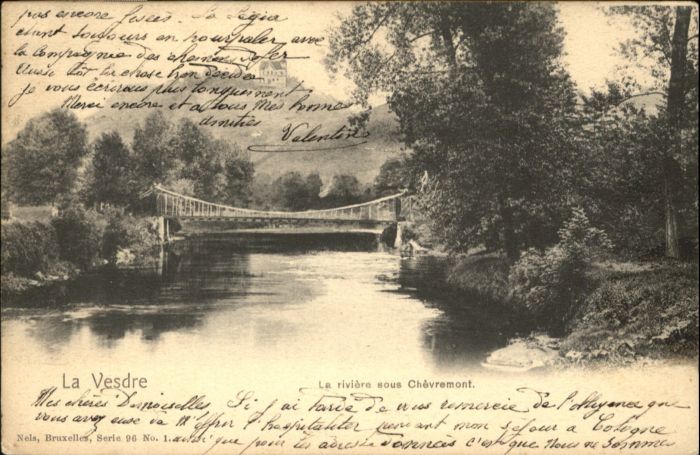 pas encore fixées. La Légia
étant toujours en pourparler avec
la Compagnie des chemins de fer
Aussi tôt la chose bien décidée
je vous écrirais plus longuement
Merci encore et à tous mes bonnes
amitiés
Valentin
La Vesdre
La rivière sous Chèvremont.
Mes chères Demoiselles, Si j'ai tardé de vous remercie de l'obligeance que
vous avez eue de m'offrir l'hospitalité pendant mon séjour à Cologne
Nels, Bruxelles, Serie 96 No. 1.
ainsi que pour les adresses données c'est que nous ne sommes